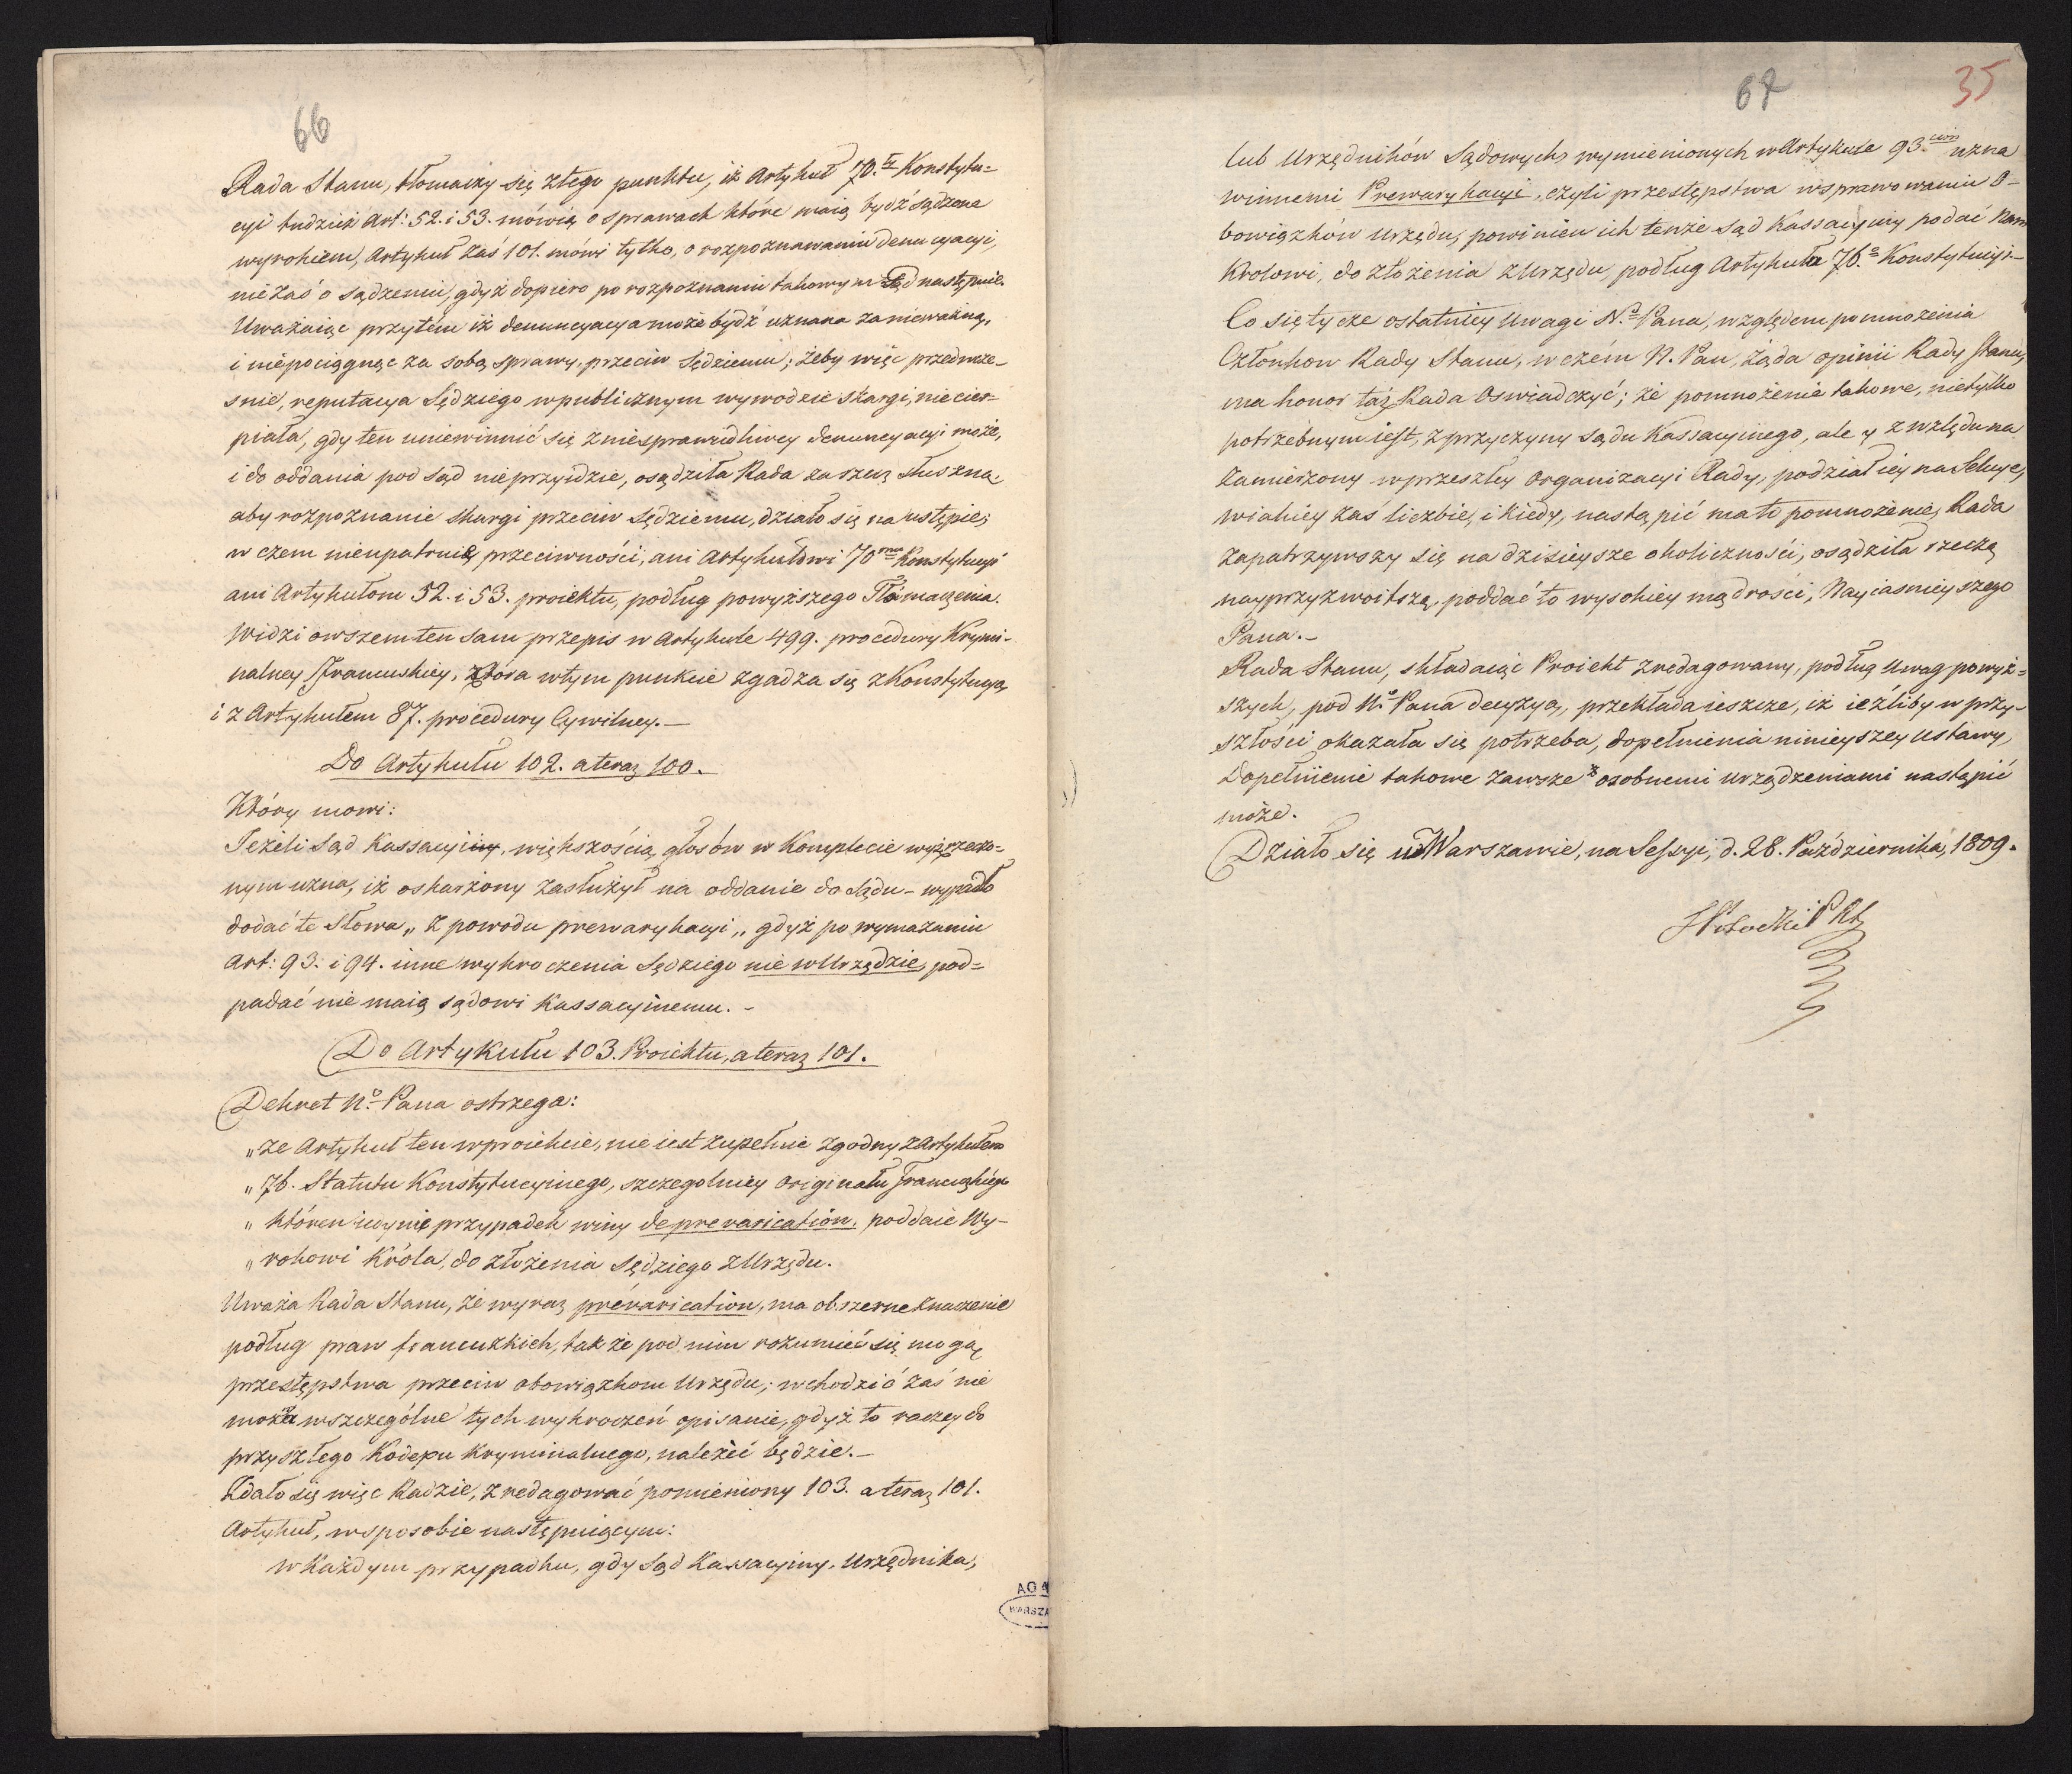 66
Rada Stanu, tłomaczy się ztego punktu, iż Artykuł 70.ty Konstytu-
cyi tudzież Art: 52. i 53. mówią o sprawach które maią bydź sądzone
wyrokiem, Artykuł zaś 101. mówi tylko, o rozpoznawaniu denuncyacyi,
nie zaś o sądzeniu, gdyż dopiero po rozpoznaniu takowym Sąd następuie.
Uważaiąc przytém iż denuncyacya może bydź uznana za nieważną,
i niepociągnąć za sobą sprawy, przeciw Sędziemu; żeby więc przedwcze-
snie, reputacya Sędziego w publicznym wywodzie skargi, nie cier-
piała, gdy ten uniewinnić się z niesprawiedliwey denuncyacyi może,
i do oddania pod sąd nie przyidzie, osądziła Rada za rzecz słuszną.
aby rozpoznanie skargi przeciw Sędziemu, działo się na ustępie;
w czem nieupatruię przeciwności, ani Artykułowi 70mu Konstytucyi
ani Artykułom 52. i 53. proiektu, podług powyższego Tłómaczenia.
Widzi owszem ten sam przepis w Artykule 499. procedury Krymi-
nalney Francuskiey, która wtym punkcie zgadza się z Konstytucyą
i z Artykułem 87. procedury Cywilney.—
Do Artykułu 102. a teraz 100.
Który mowi:
Jeżeli Sąd Kassacyiny, większością głosów w Komplecie wyżrzeczo-
nym uzna, iż oskarżony zasłużył na oddanie do Sądu – wypadło
dodać te Słowa „ z powodu prewarykacyi „ gdyż po wymazaniu
Art: 93. i 94. inne wykroczenia Sędziego nie w Urzędzie, pod=
padać nie maią sądowi Kassacyinemu. –
Do Artykułu 103. Proiektu, a teraz 101.
Dekret N.o Pana ostrzega:
„ że Artykuł ten w proiekcie, nie iest zupełnie zgodny z Artykułem
„ 76. Statutu Konstytucyinego, szczegolniey originału Francuzkiégo
„ któren iedynie przypadek winy de prevarication, poddaie Wy-
„ rokowi Króla, do złożenia Sędziego z Urzędu.
Uważa Rada Stanu, że wyraz prévarication, ma obszerne znaczenie
podług praw francuzkich, tak że pod nim rozumieć się mogą
przestępstwa przeciw obowiązkom Urzędu; wchodzić zaś nie
może wszczególne tych wykroczeń opisanie, gdyż to raczey do
przyszłego Kodexu Kryminalnego, należéć będzie.—
Zdało się więc Radzie, zredagować pomieniony 103. a teraz 101.
Artykuł, w sposobie następuiącym:
w Każdym przypadku, gdy Sąd Kassacyiny, Urzędnika,
67
35
lub Urzędników Sądowych, wymienionych w Artykule 93.cim uzna
winnemi Prewarykacyi, czyli przestępstwa w sprawowaniu O-
bowiązków urzędu, powinien ich tenże Sąd Kassacyiny podać Nam
Krolowi, do złożenia z Urzędu, podług Artykułu 76.o Konstytucyi.—
Co się tycze ostatniey Uwagi N.o Pana, względem pomnożenia
Członkow Rady Stanu, w czém N. Pan, żąda opinii Rady Stanu,
ma honor taż Rada Oswiadczyć; że pomnożenie takowe, nietylko
potrzebnym iest, z przyczyny Sądu Kassacyinego, ale y z względu na
zamierzony w przeszłey Organizacyi Rady, podział iey na Sekcye,
w iakiey zaś liczbie, i kiedy, nastąpić ma to pomnożenie, Rada
zapatrzywszy się na dzisieysze okoliczności, osądziła rzeczą
nayprzyzwoitszą, poddać to wysokiey mądrości, Nayiasnieyszego
Pana.—
Rada Stanu, składaiąc Proiekt zredagowany, podług Uwag powyż=
szych, pod N.o Pana decyzyą, przekłada ieszcze, iż ieźliby w przy-
szłości, okazała się potrzeba, dopełnienia ninieyszey Ustawy,
Dopełnienie takowe zawsze osobnemi urządzeniami nastąpić
może.
Działo się w Warszawie, na Sessyi, d. 28. Października, 1809.
AGA
WARSZA